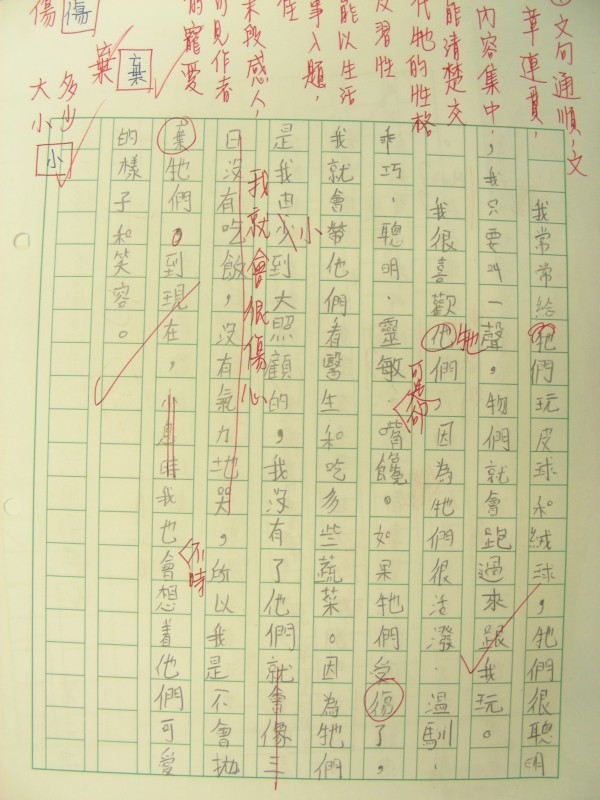 文句通順，文
章連貫，
內容集中，
能清楚交
代牠的性格
及習性
能以生活
事入題，
佳
末段感人，
可見作者
的寵愛
傷 傷
棄 棄
多少
大小 小
我常常給牠們玩皮球和絨球，牠們很聰明
，我只要叫一聲，物們就會跑過來跟我玩。
我很喜歡他們，因為牠們很活潑．溫馴．
牠
乖巧．聰明．靈敏．嘴饞。如果牠們受傷了，
我就會帶他們看醫生和吃多些蔬菜。因為牠們
小
是我由少到大照顧的，我沒有了他們就會像三
我就會很傷心
日沒有吃飯，沒有氣力地哭，所以我是不會拋
不時
棄牠們。到現在，小息時我也會想着他們可愛
的樣子和笑容。